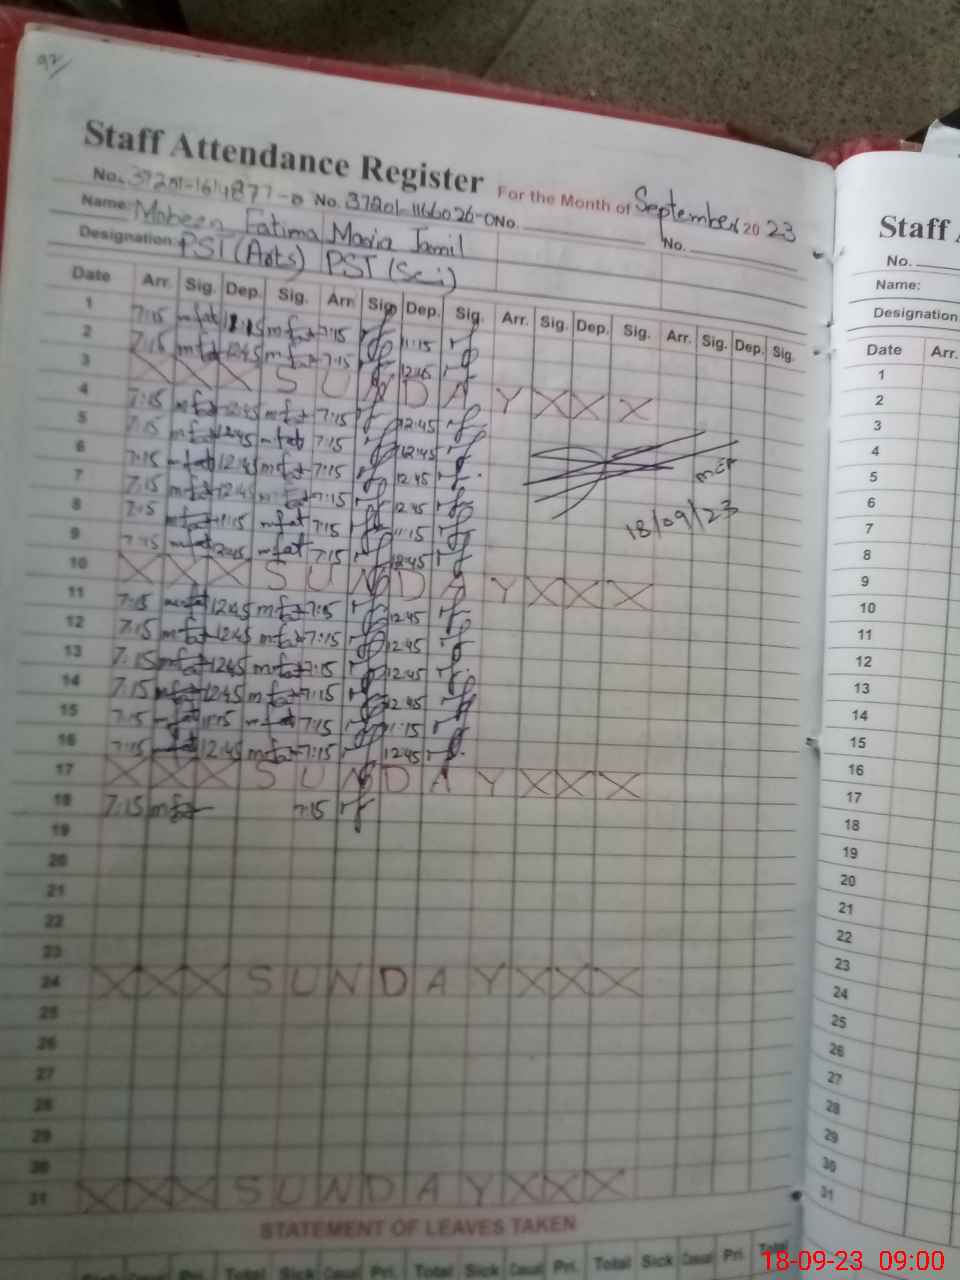 92/
Staff Attendance Register For the Month of September 2023
No. 37201-1614877-0 No. 37201-1166026-0 No. No.
Name: Mobeen Fatima Maria Jamil
Designation PST (Arts) PST (Sci)
Date Arr. Sig. Dep. Sig. Arr. Sig. Dep. Sig. Arr. Sig. Dep. Sig. Arr. Sig. Dep. Sig.
1 7:15 mfat 11:15 mfat 7:15 11:15
2 7:15 mfat 12:45 mfat 7:15 12:45
3 X X X S U N D A Y X X X
4 7:15 mfat 12:45 mfat 7:15 12:45
5 7:15 mfat 12:45 mfat 7:15 12:45
6 7:15 mfat 12:45 mfat 7:15 12:45
7 7:15 mfat 12:45 mfat 7:15 12:45
8 7:15 mfat 11:15 mfat 7:15 11:15
9 7:15 mfat 12:45 mfat 7:15 12:45
MEA
18/09/23
10 X X X S U N D A Y X X X
11 7:15 mfat 12:45 mfat 7:15 12:45
12 7:15 mfat 12:45 mfat 7:15 12:45
13 7:15 mfat 12:45 mfat 7:15 12:45
14 7:15 mfat 12:45 mfat 7:15 12:45
15 7:15 mfat 11:15 mfat 7:15 11:15
16 7:15 mfat 12:45 mfat 7:15 12:45
17 X X X S U N D A Y X X X
18 7:15 mfat 7:15
19
20
21
22
23
24 X X X S U N D A Y X X X
25
26
27
28
29
30
31 X X X S U N D A Y X X X
STATEMENT OF LEAVES TAKEN
Sick Casual Pri. Total Sick Casual Pri. Total Sick Casual Pri. Total
Staff
No.
Name:
Designation
Date Arr.
1
2
3
4
5
6
7
8
9
10
11
12
13
14
15
16
17
18
19
20
21
22
23
24
25
26
27
28
29
30
31
18-09-23 09:00